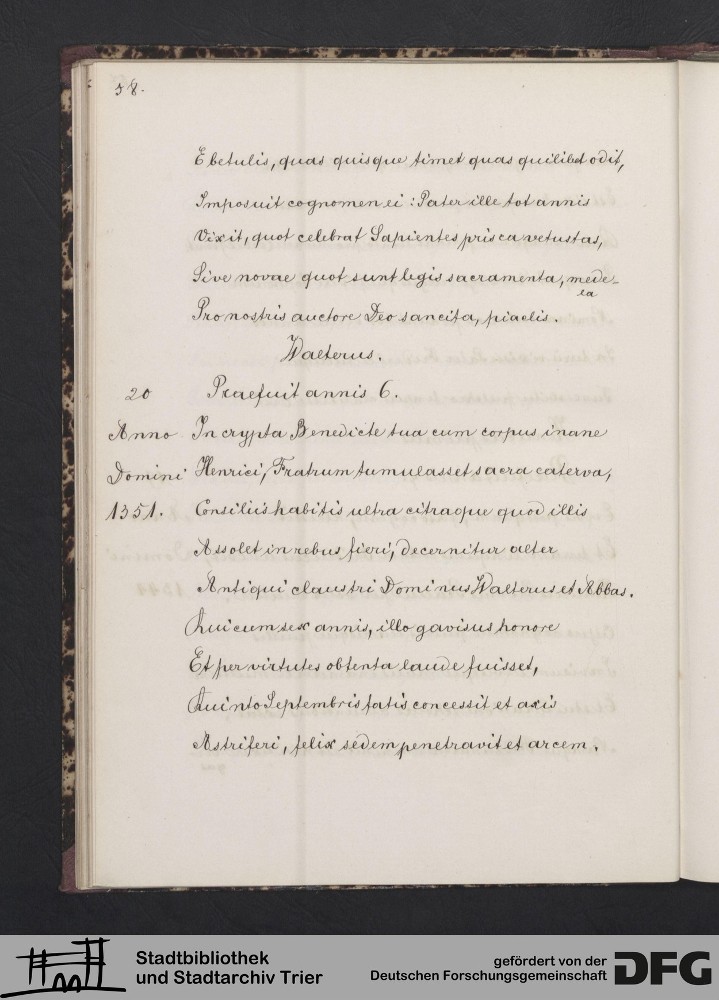 58.
E betulis, quas quisque timet quas quilibet odit,
Imposuit cognomen ei: Pater ille tot annis
Vixit, quot celebrat Sapientes prisca vetustas,
Sive novae quot sunt legis sacramenta, mede-
la
Pro nostris auctore Deo sancita, piaclis.
Walterus.
20 Praefuit annis 6.
Anno In crypta Benedicte tua cum corpus inane
Domini Henrici, Fratrum tumulasset sacra caterva,
1351. Consiliis habitis ultra citraque quod illis
Assolet in rebus fieri, decernitur alter
Antiqui claustri Dominus Walterus et Abbas.
Qui cum sex annis, illo gavisus honore
Et per virtutes obtenta laude fuisset,
Quinto Septembris fatis concessit et axis
Astriferi, felix sedem penetravit et arcem.
Stadtbibliothek
und Stadtarchiv Trier
gefördert von der
Deutschen Forschungsgemeinschaft
DFG